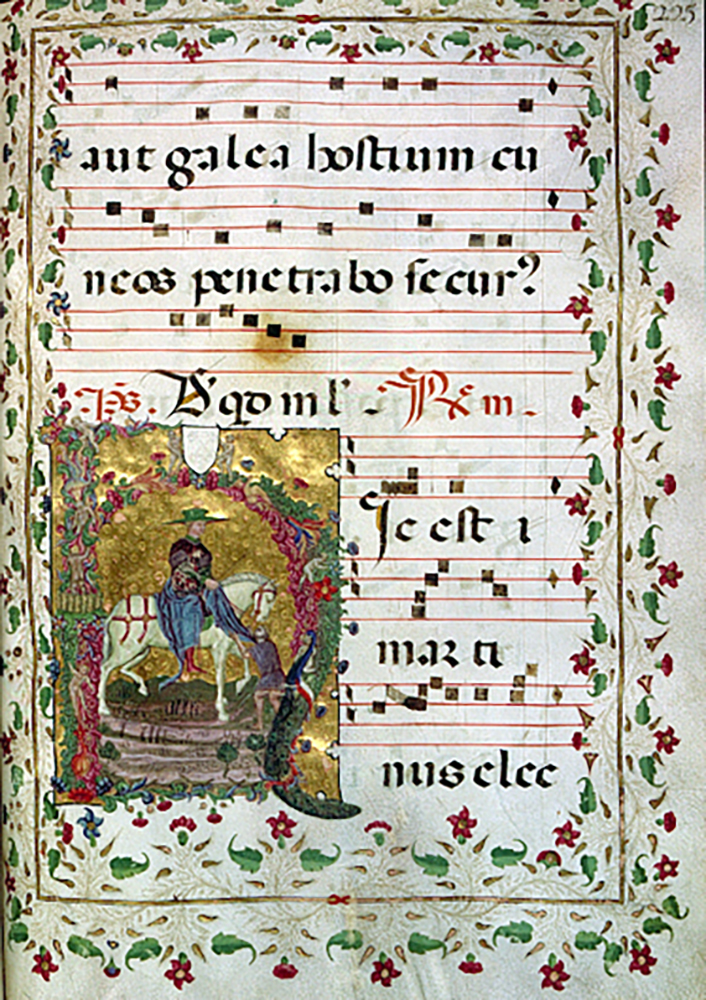 225
aut galea hostium cu
neos penetrabo secur?
Ps. D's qd m l'. Rx m.
Ic est
mar ti
nus elec